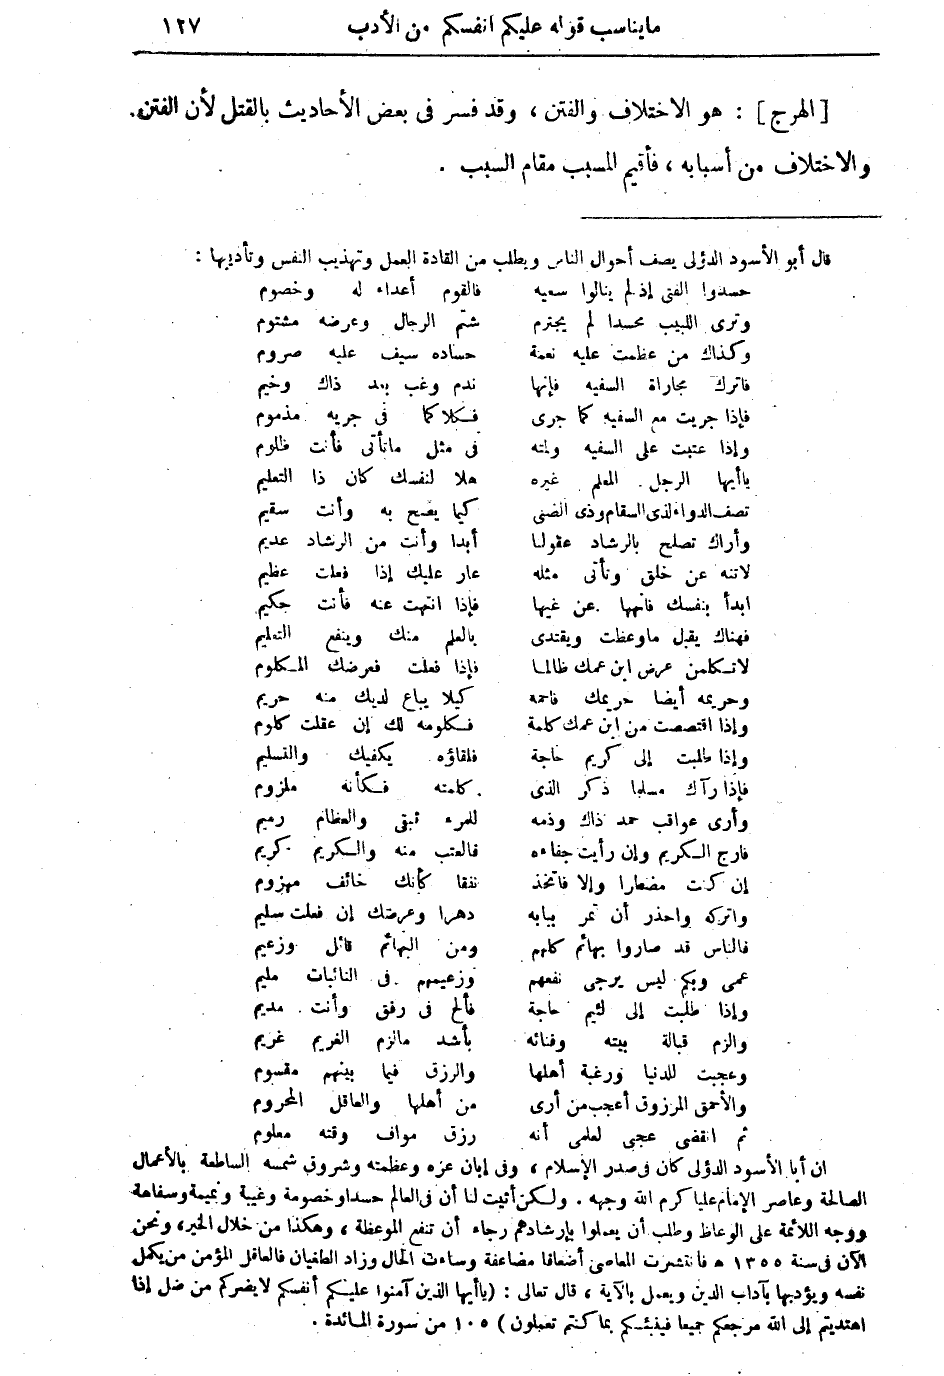 مايناسب قوله عليكم أنفسكم من الأدب ١٢٧
[الهرج] : هو الاختلاف والفتن ، وقد فسر فى بعض الأحاديث بالقتل لأن الفتن
والاختلاف من أسبابه ، فأقيم المسبب مقام السبب .
قال أبو الأسود الدؤلى يصف أحوال الناس ويطلب من القادة العمل وتهذيب النفس وتأديبها :
حسدوا الفتى إذ لم ينالوا سعيه فالقوم أعداء له وخصوم
وترى اللبيب محسدا لم يجترم شتم الرجال وعرضه مشتوم
وكذاك من عظمت عليه نعمة حساده سيف عليه صروم
فاترك مجاراة السفيه فإنها ندم وغب بعد ذاك وخيم
فإذا جريت مع السفيه كما جرى فكلاكما فى جريه مذموم
وإذا عتبت على السفيه ولمته فى مثل ماتأتى فأنت ظلوم
ياأيها الرجل المعلم غيره هلا لنفسك كان ذا التعليم
تصف الدواء لذى السقام وذى الضنى كيما يصح به وأنت سقيم
وأراك تصلح بالرشاد عقولنا أبدا وأنت من الرشاد عديم
لاتنه عن خلق وتأتى مثله عار عليك إذا فعلت عظيم
ابدأ بنفسك فانهها عن غيها فإذا انتهت عنه فأنت حكيم
فهناك يقبل ماوعظت ويقتدى بالعلم منك وينفع التعليم
لاتكلمن عرض ابن عمك ظالما فإذا فعلت فعرضك المكلوم
وحريمه أيضا حريمك فاحمه كيلا يباع لديك منه حريم
وإذا اقتصصت من ابن عمك كلمة فكلومه لك إن عقلت كلوم
وإذا طلبت إلى كريم حاجة فلقاؤه يكفيك والتسليم
فإذا رآك مسلما ذكر الذى كلمته فكأنه ملزوم
وأرى عواقب حمد ذاك وذمه للمرء تبقى والعظام رميم
فارج الكريم وإن رأيت جفاءه فالعتب منه والكريم كريم
إن كنت مضطرا وإلا فاتخذ نفقا كأنك خائف مهزوم
واتركه واحذر أن تمر ببابه دهرا وعرضك إن فعلت سليم
فالناس قد صاروا بهائم كلهم ومن البهائم قائل وزعيم
عمى وبكم ليس يرجى نفعهم وزعيمهم فى النائبات مليم
وإذا طلبت إلى لئيم حاجة فألح فى رفق وأنت مديم
والزم قبالة بيته وفنائه بأشد مالزم الغريم غريم
وعجبت للدنيا ورغبة أهلها والرزق فيما بينهم مقسوم
والأحمق المرزوق أعجب من أرى من أهلها والعاقل المحروم
ثم انقضى عجبى لعلمى أنه رزق مواف وقته معلوم
ان أبا الأسود الدؤلى كان فى صدر الإسلام ، وفى إبان عزه وعظمته وشروق شمسه الساطعة بالأعمال
الصالحة وعاصر الإمام عليا كرم الله وجهه . ولكن أثبت لنا أن فى العالم حسدا وخصومة وغيبة ونميمة وسفاهة
ووجه اللائمة على الوعاظ وطلب أن يعملوا بإرشادهم رجاء أن تنفع الموعظة ، وهكذا من خلال الخير، ونحن
الآن فى سنة ١٣٥٥ هـ فانتشرت المعاصى أضعافا مضاعفة وساءت الحال وزاد الطغيان فالعاقل المؤمن من يكمل
نفسه ويؤدبها بآداب الدين ويعمل بالآية ، قال تعالى : (ياأيها الذين آمنوا عليكم أنفسكم لايضركم من ضل إذا
اهتديتم إلى الله مرجعكم جميعا فينبئكم بما كنتم تعملون) ١٠٥ من سورة المائدة .